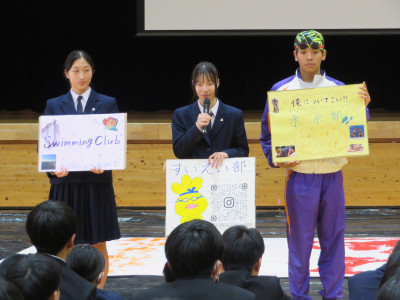 Swimming Club
すいえい部
俺についてこい!!
水泳部